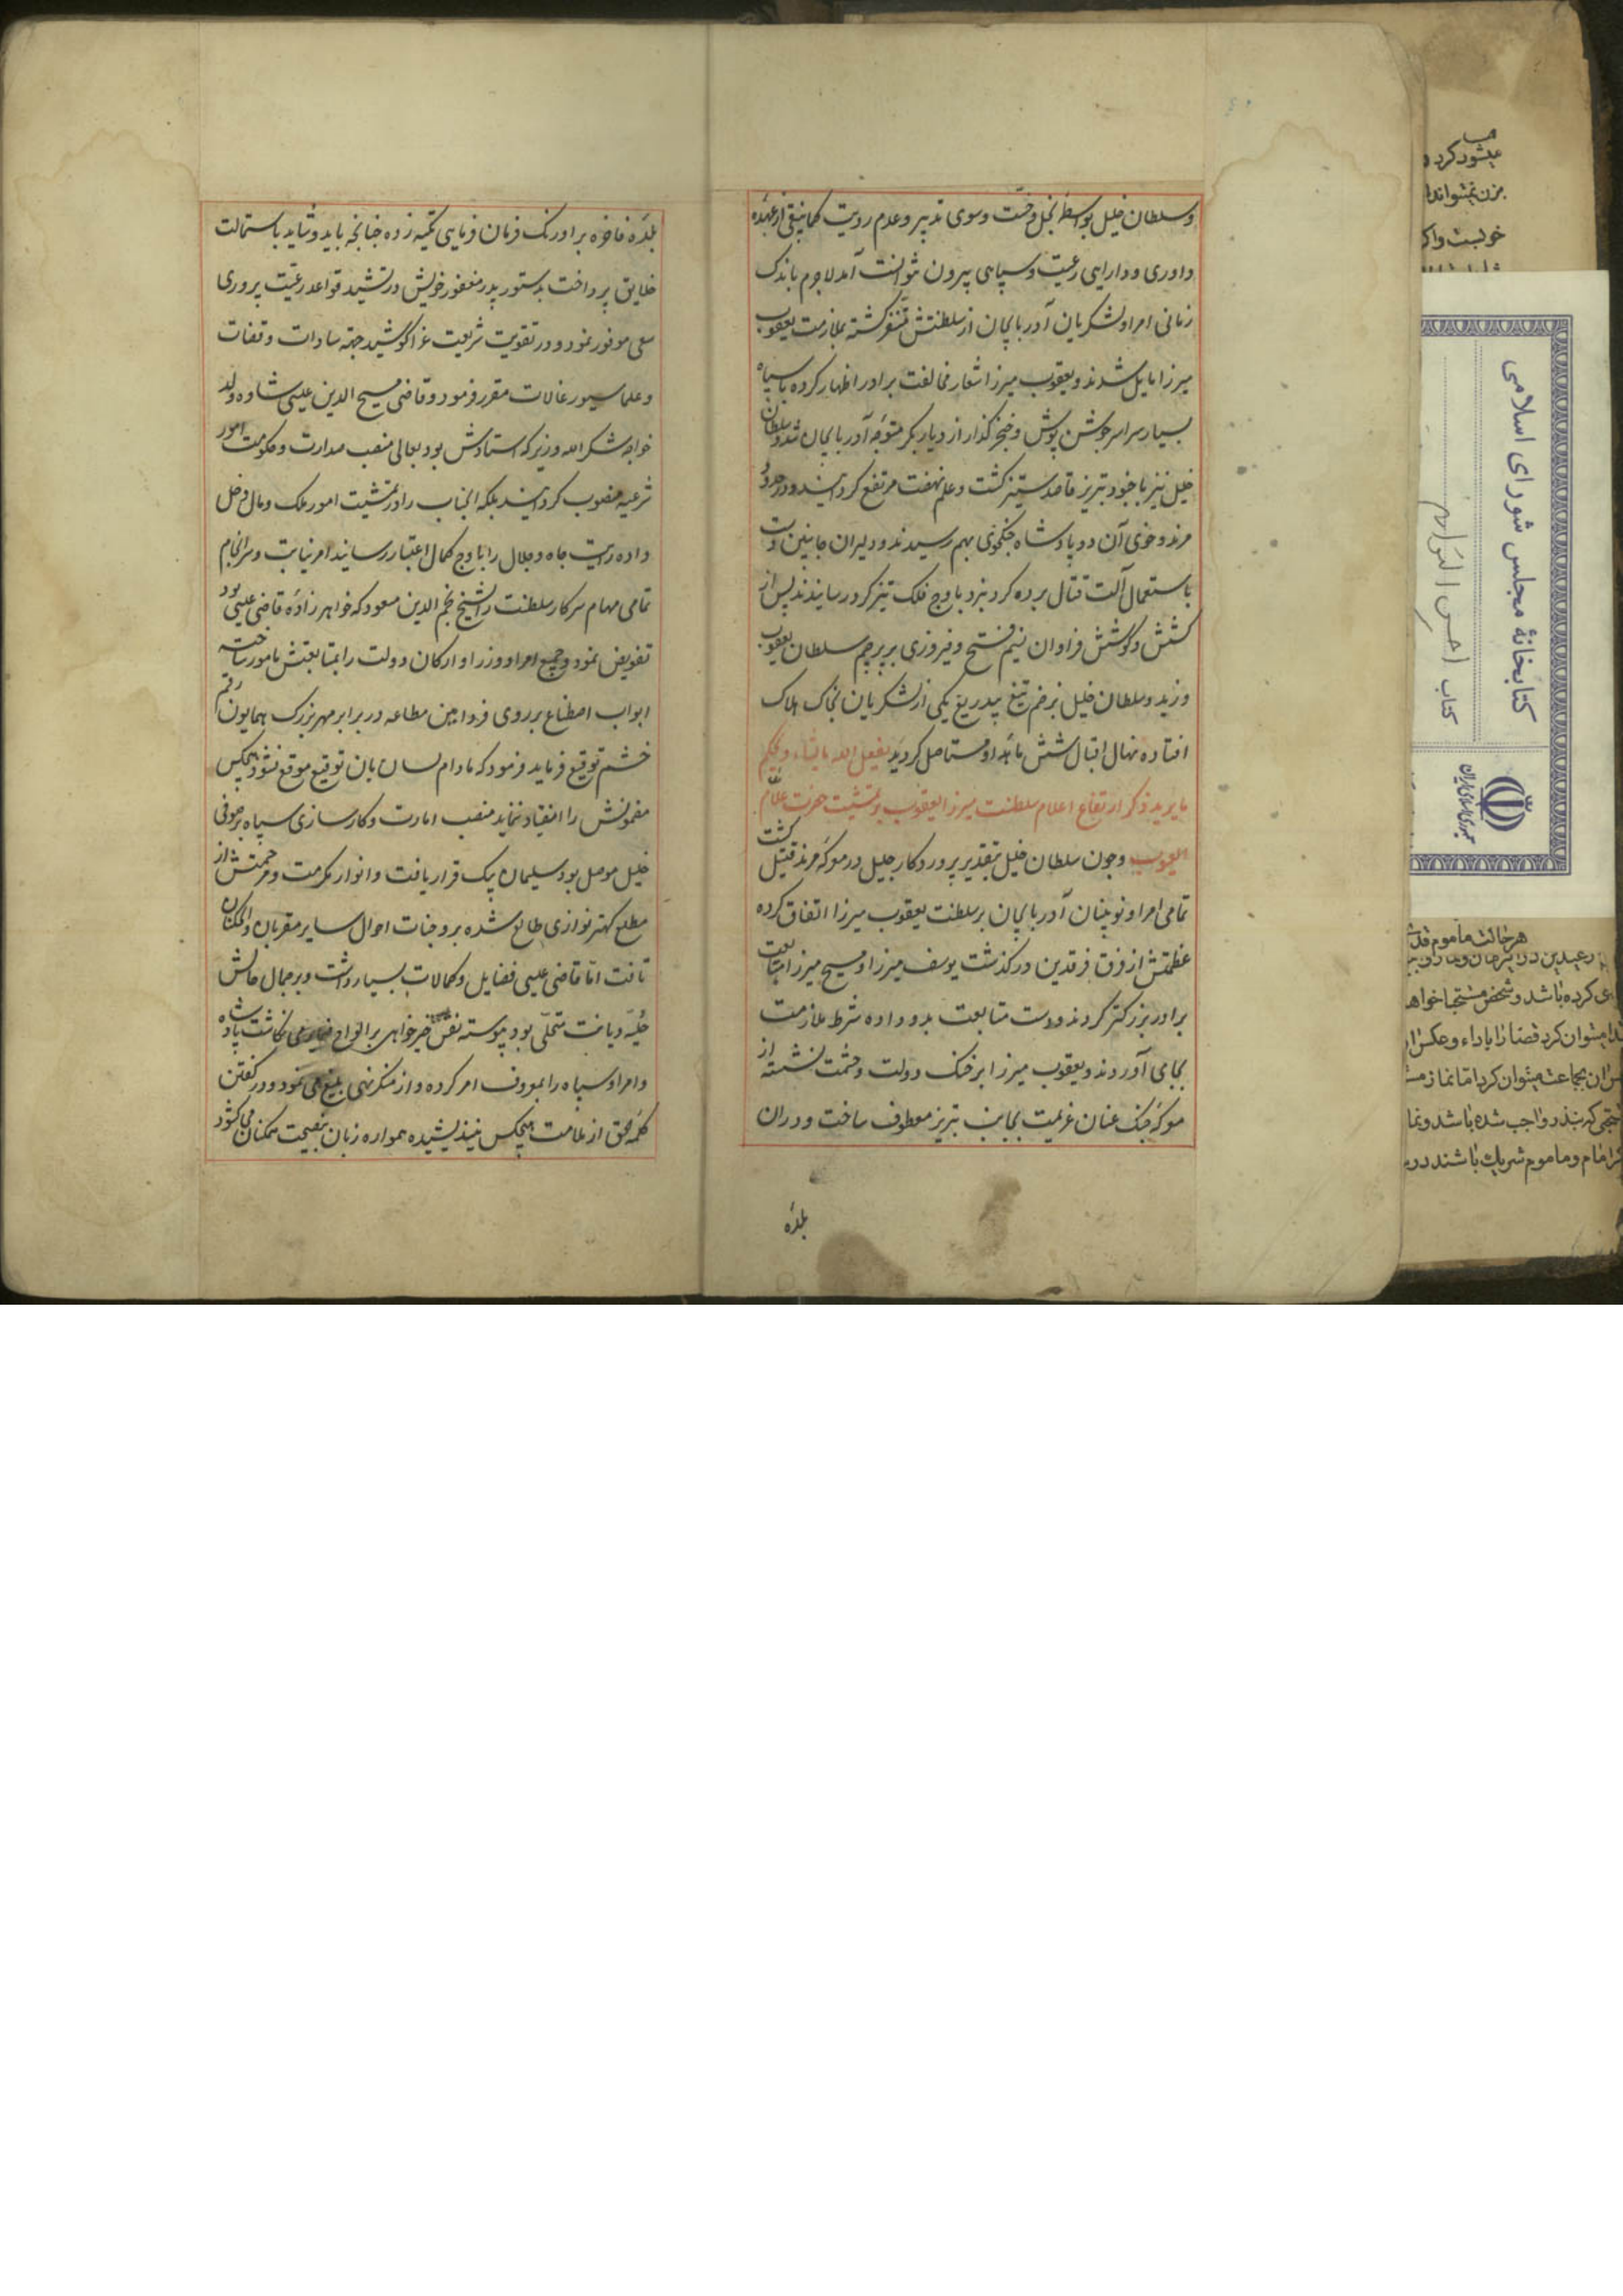 وسلطان خلیل بواسطهٔ بخل وخست وسوی تدبیر وعدم رویت کماینبغی از عهدهٔ
داوری ودارایی رعیت وسپاهی بیرون نتوانست آمد لاجرم باندک
زمانی امرا ولشکریان آذربایجان از سلطنتش متنفر کشته بملازمت یعقوب
میرزا مایل شدند ویعقوب میرزا شعار مخالفت برادر اظهار کرده با سپاه
بسیار سراسر جوشن پوش وخنجر کذار از دیار بکر متوجه آذربایجان شد وسلطان
خلیل نیز با جنود تبریز قاصد ستیز کشت وعلم نهضت مرتفع کردانید ودر حدود
مرند وخوی آن دو پادشاه جنکجوی بهم رسیدند ودلیران جانبین دست
باستعمال آلت قتال برده کرد نبرد باوج فلک تیز کرد رسانیدند پس از
کشش وکوشش فراوان نسیم فتح وفیروزی بر پرچم سلطان یعقوب
وزید وسلطان خلیل بزخم تیغ بیدریغ یکی از لشکریان بخاک هلاک
افتاده نهال اقبال شش ماهه او مستاصل کردید یفعل الله مایشاء ویحکم
مایرید ذکر ارتفاع اعلام سلطنت میرزا یعقوب بمشیت حضرت علام
الغیوب وچون سلطان خلیل بتقدیر پروردکار جلیل در معرکهٔ مرند قتیل کشت
تمامی امرا ونوینان آذربایجان بر سلطنت یعقوب میرزا اتفاق کرده
عظمتش از فرق فرقدین درکذشت یوسف میرزا ومسیح میرزا متابعت
برادر بزرکتر کردند ودست متابعت بدو داده شرط ملازمت
بجای آوردند ویعقوب میرزا بر خنک دولت وحشمت نشسته از
معرکهٔ جنک عنان عزیمت بجانب تبریز معطوف ساخت ودران
بلدهٔ
بلدهٔ فاخره بر اورنک فرمان فرمایی تکیه زده چنانچه باید وشاید باستمالت
خلایق پرداخت بدستور پدر مغفور خویش در تشیید قواعد رعیت پروری
سعی موفور نمود ودر تقویت شریعت غرا کوشید جهة سادات وقضات
وعلما سیورغالات مقرر فرمود وقاضی مسیح الدین عیسی ساوه ولد
خواجه شکرالله وزیر که استادش بود بعالی منصب صدارت وحکومت امور
شرعیه منصوب کردانید بلکه آنجناب را در تمشیت امور ملک ومال دخل
داده رایت جاه وجلال را باوج کمال اعتبار رسانید امر نیابت وسرانجام
تمامی مهام سرکار سلطنت را بشیخ نجم الدین مسعود که خواهر زاده قاضی عیسی بود
تفویض نمود وجمیع امرا ووزرا وارکان دولت را بمتابعتش مامور ساخته
ابواب اصطناع بر روی فرامین مطاعه در برابر مهر بزرک همایون رقم
خشم توقیع فرماید فرمود که مادام لسان بان توقیع موقع نشود هیچکس
مضمونش را انقیاد ننماید منصب امارت وکارسازی سپاه بر صوفی
خلیل موصل بود وسلیمان بیک قرار یافت وانوار مکرمت ومرحمتش از
مطلع کهتر نوازی طالع شده بر وجنات احوال سایر مقربان وارکان
تافت اما قاضی عیسی فضایل وکمالات بسیار داشت وبر جمال حالش
حلیه دیانت متحلی بود پیوسته نقش خیرخواهی بر الواح می نکاشت پادشاه
وامرا وسپاه را بمعروف امر کرده واز منکر نهی بلیغ می نمود ودر کفتن
کلمه حق از ملامت هیچکس نیندیشیده همواره زبان بنصیحت همکنان می کشود
کتابخانهٔ مجلس شورای اسلامی
کتاب احسن التواریخ
جمهوری اسلامی ایران